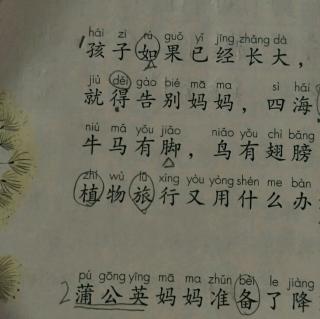 hái zi rú guǒ yǐ jīng zhǎng dà
1孩子如果已经长大，
jiù děi gào bié mā ma sì hǎi
就得告别妈妈，四海
niú mǎ yǒu jiǎo niǎo yǒu chì bǎng
牛马有脚，鸟有翅膀
zhí wù lǚ xíng yòu yòng shén me bàn
植物旅行又用什么办
pú gōng yīng mā ma zhǔn bèi le jiàng
2蒲公英妈妈准备了降